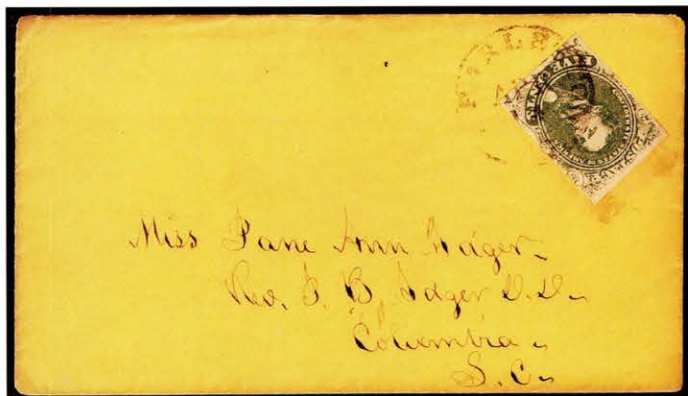 FIVE CENTS
Miss Jane Ann Adger
Rev. J. B. Adger D.D.
Columbia
S.C.